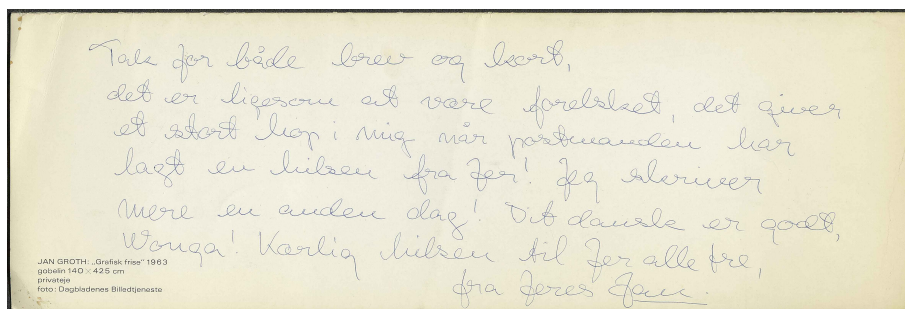 Tak for både brev og kort,
det er ligesom at være forelsket, det giver
et stort hop i mig når postmanden har
lagt en hilsen fra Jer! Jeg skriver
mere en anden dag! Dit danske er godt,
Wonga! Kærlig hilsen til Jer alle tre,
fra Jeres Jan.
JAN GROTH: „Grafisk frise" 1963
gobelin 140 × 425 cm
privateje
foto: Dagbladenes Billedtjeneste